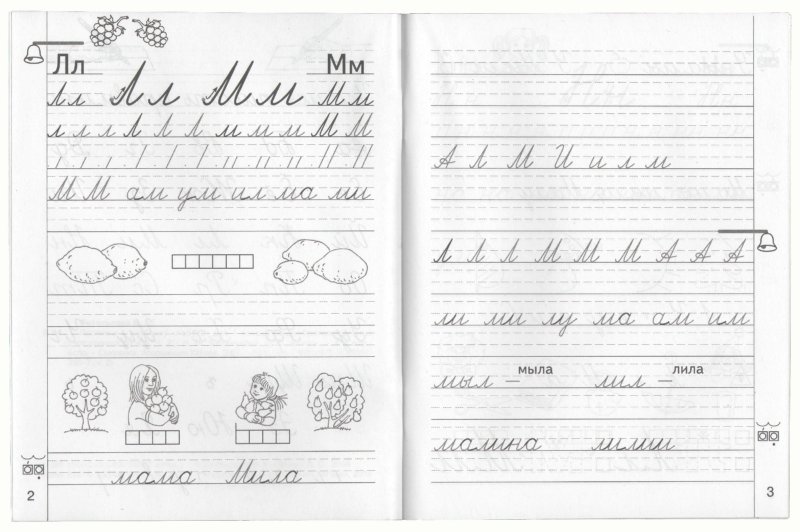 Лл Мм
Лл Лл Мм Мм
л л л Л Л Л м м м М М
М М ам ум им ма ми
мама Мила
2
А Л М И и л м
Л Л Л М М М А А А
ли ми лу ма ам им
мыл – мыла лил – лила
малина лилии
3